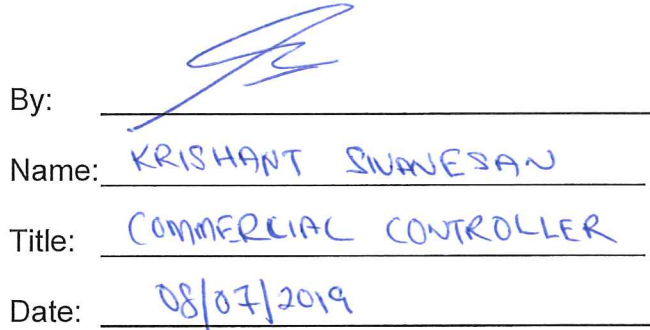 By:
Name: KRISHANT SIVANESAN
Title: COMMERCIAL CONTROLLER
Date: 08/07/2019